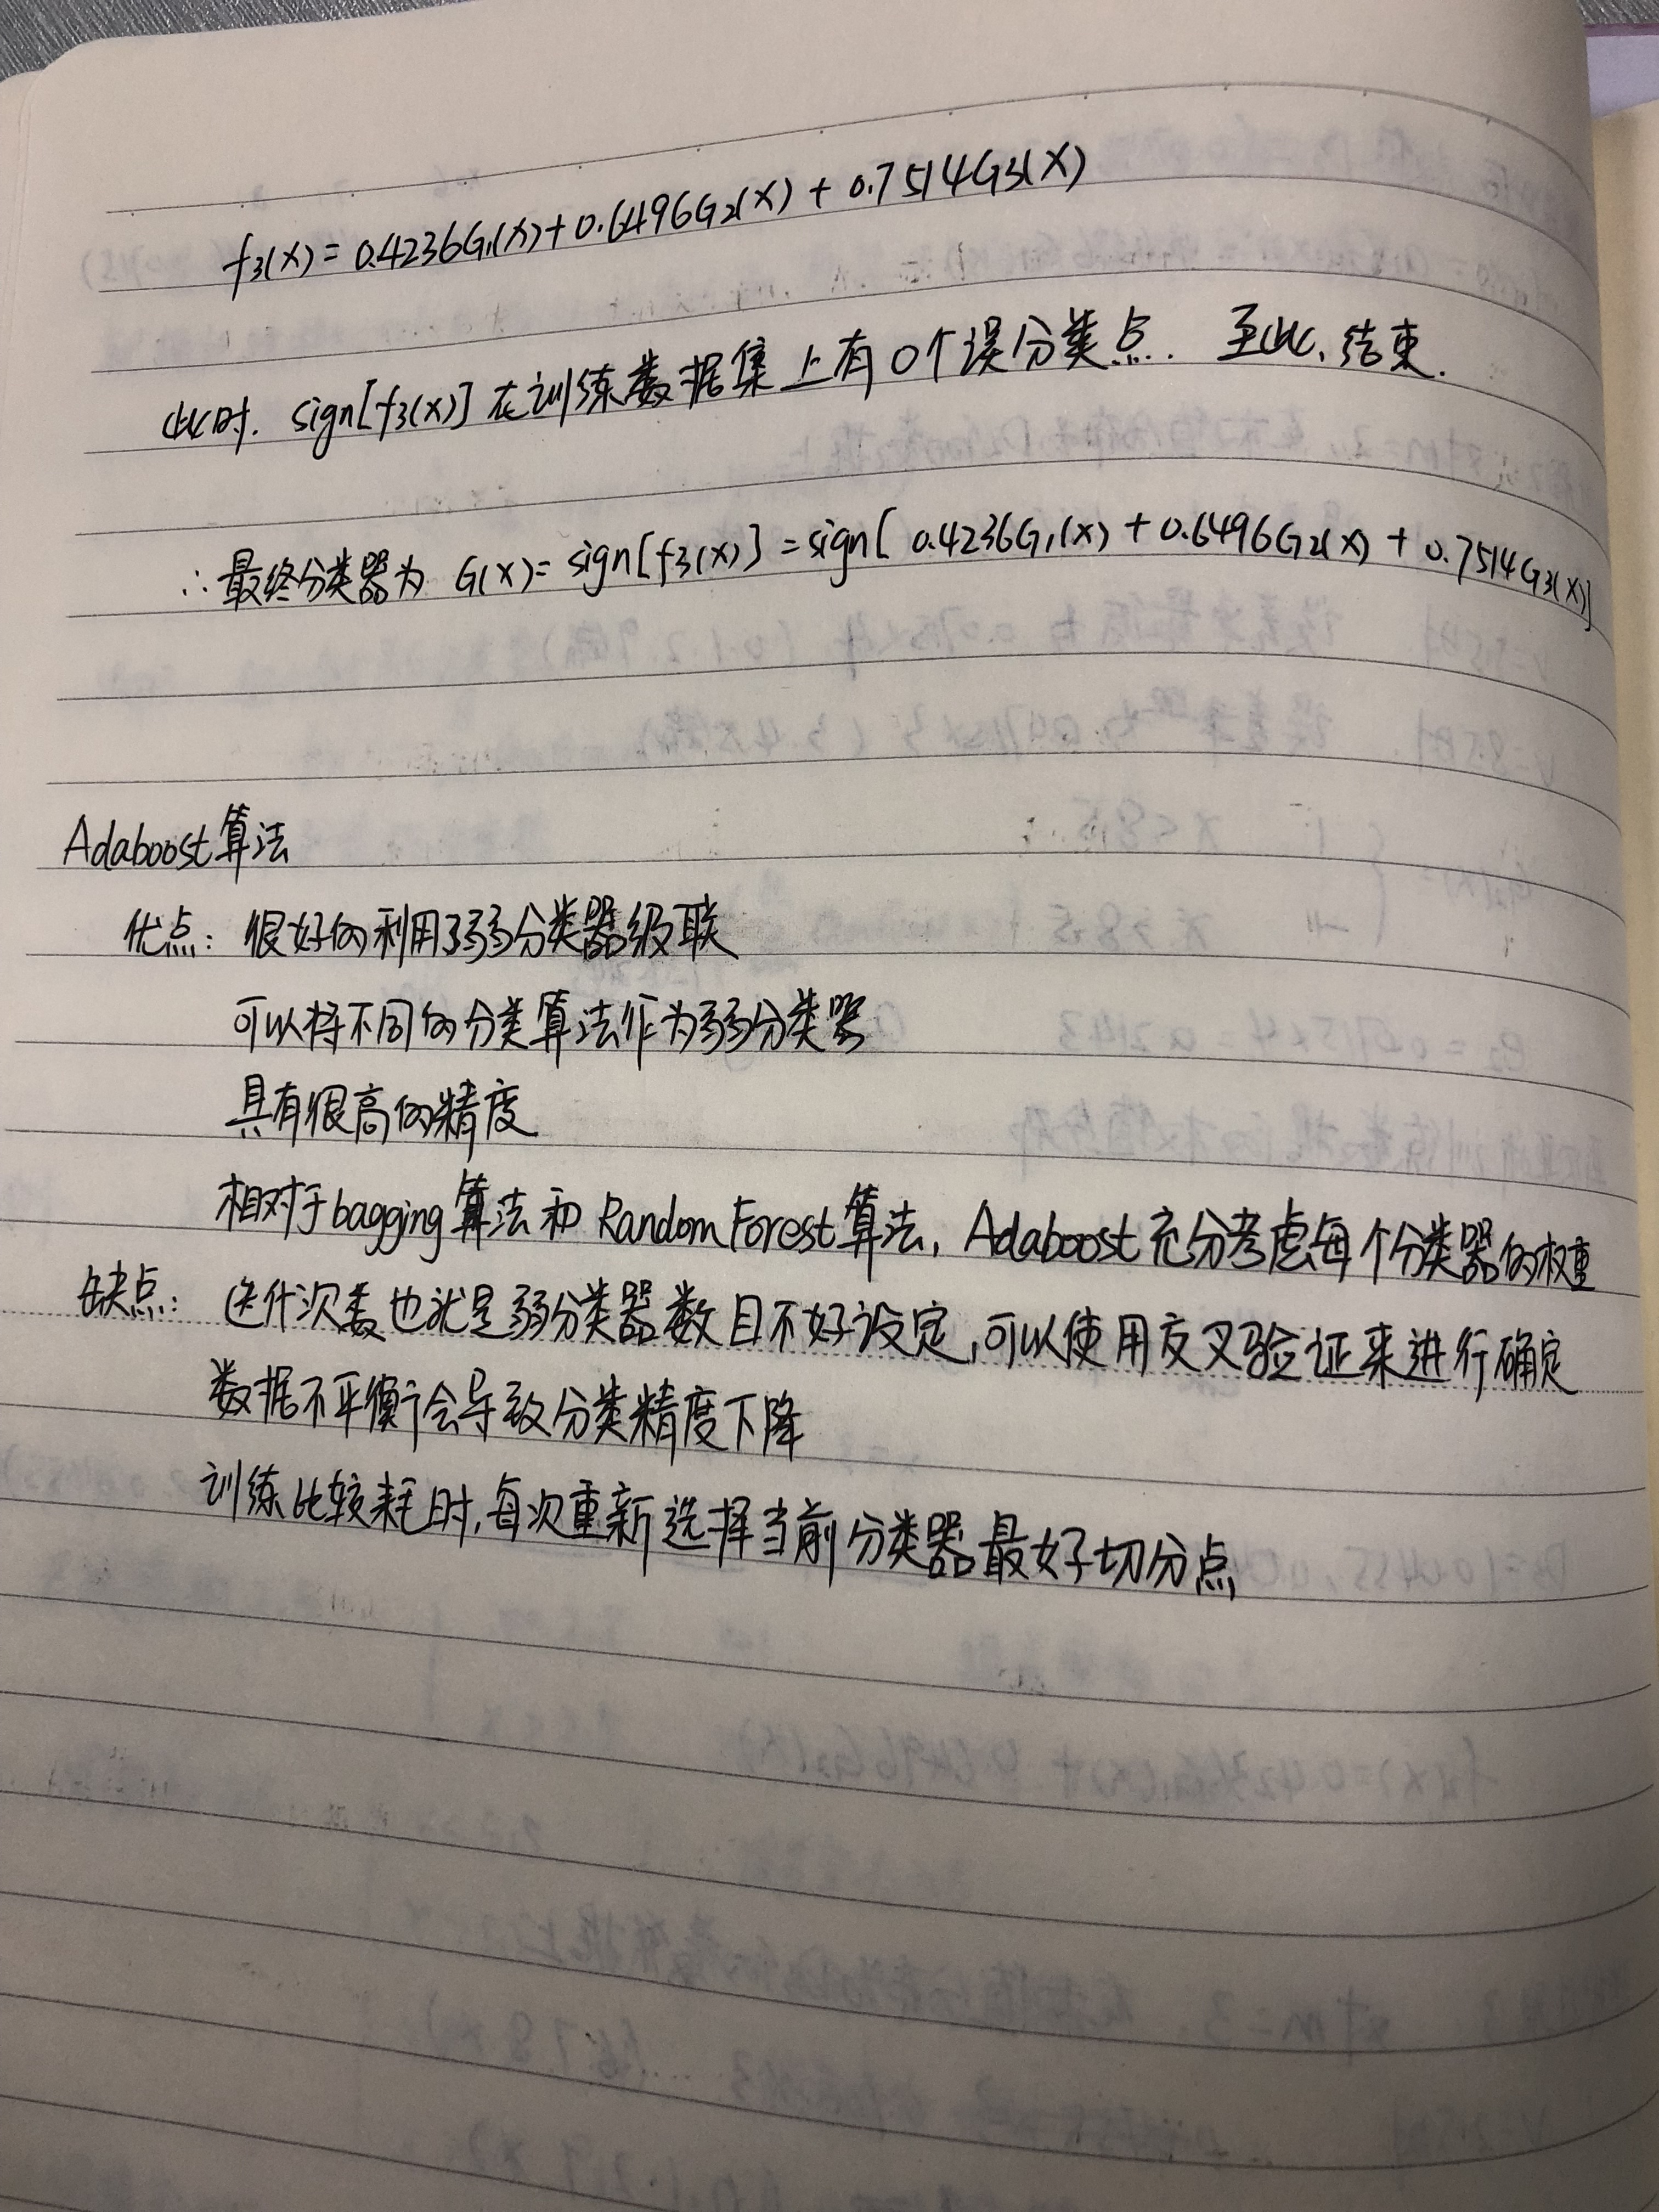 f3(x) = 0.4236G1(x) + 0.6496G2(x) + 0.7514G3(x)
此时. sign[f3(x)] 在训练数据集上有0个误分类点. 至此, 结束.
∴最终分类器为 G(x) = sign[f3(x)] = sign[ 0.4236G1(x) + 0.6496G2(x) + 0.7514G3(x)]
Adaboost算法
优点: 很好的利用了弱分类器级联
可以将不同的分类算法作为弱分类器
具有很高的精度
相对于bagging算法和 Random Forest算法, Adaboost充分考虑每个分类器的权重
缺点: 迭代次数也就是弱分类器数目不好设定,可以使用交叉验证来进行确定
数据不平衡会导致分类精度下降
训练比较耗时,每次重新选择当前分类器最好切分点